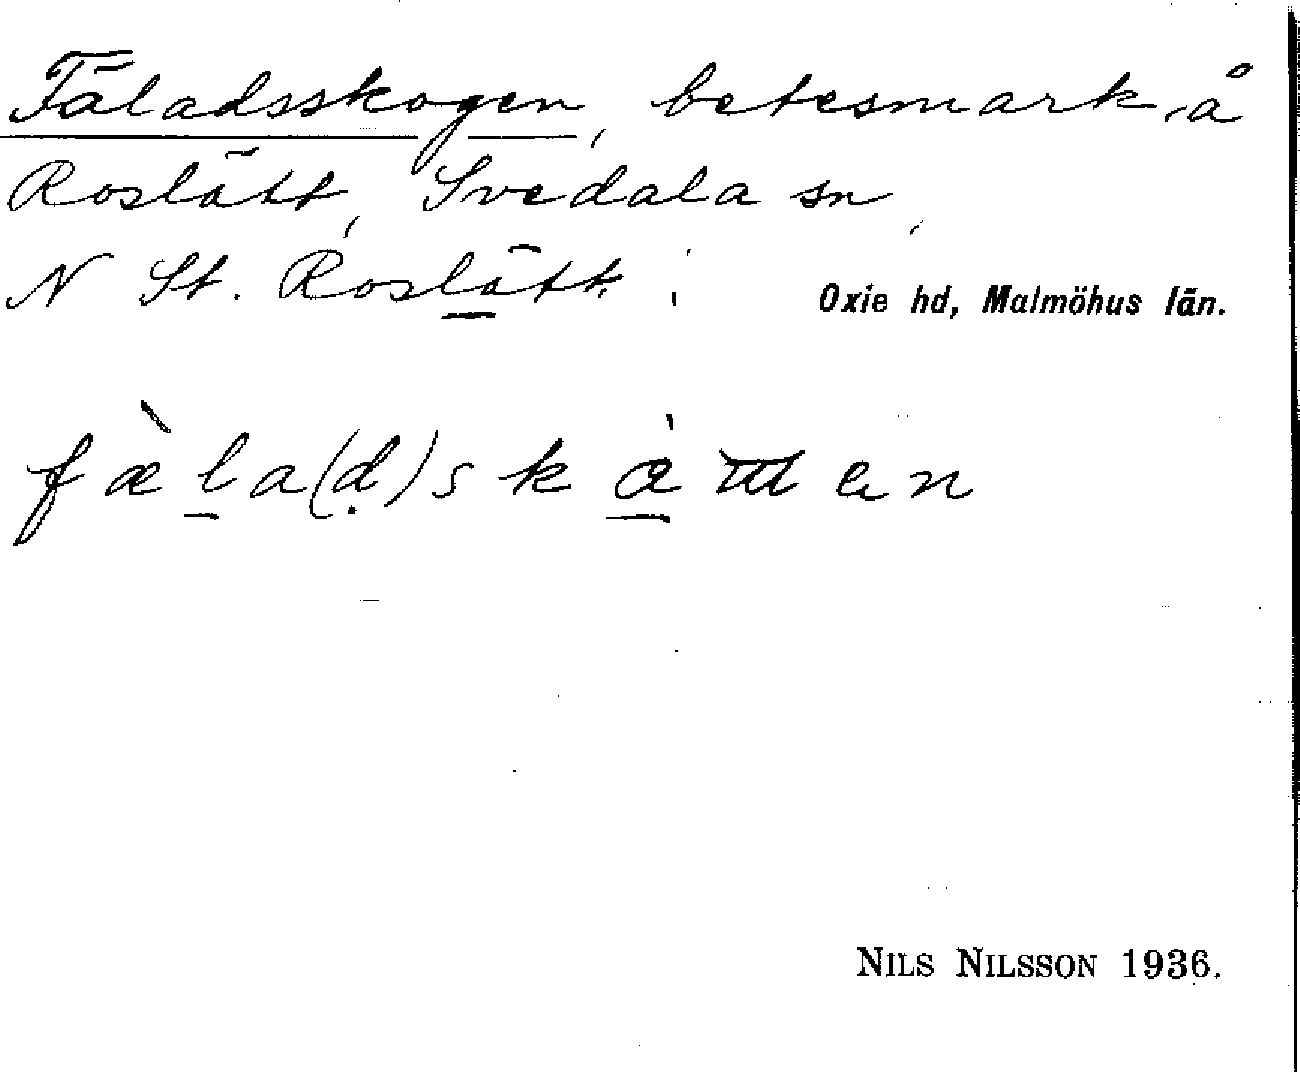 Fäladsskogen, betesmark å
Roslätt, Svedala sn,
N St. Roslätt.
Oxie hd, Malmöhus län.
NILS NILSSON 1936.